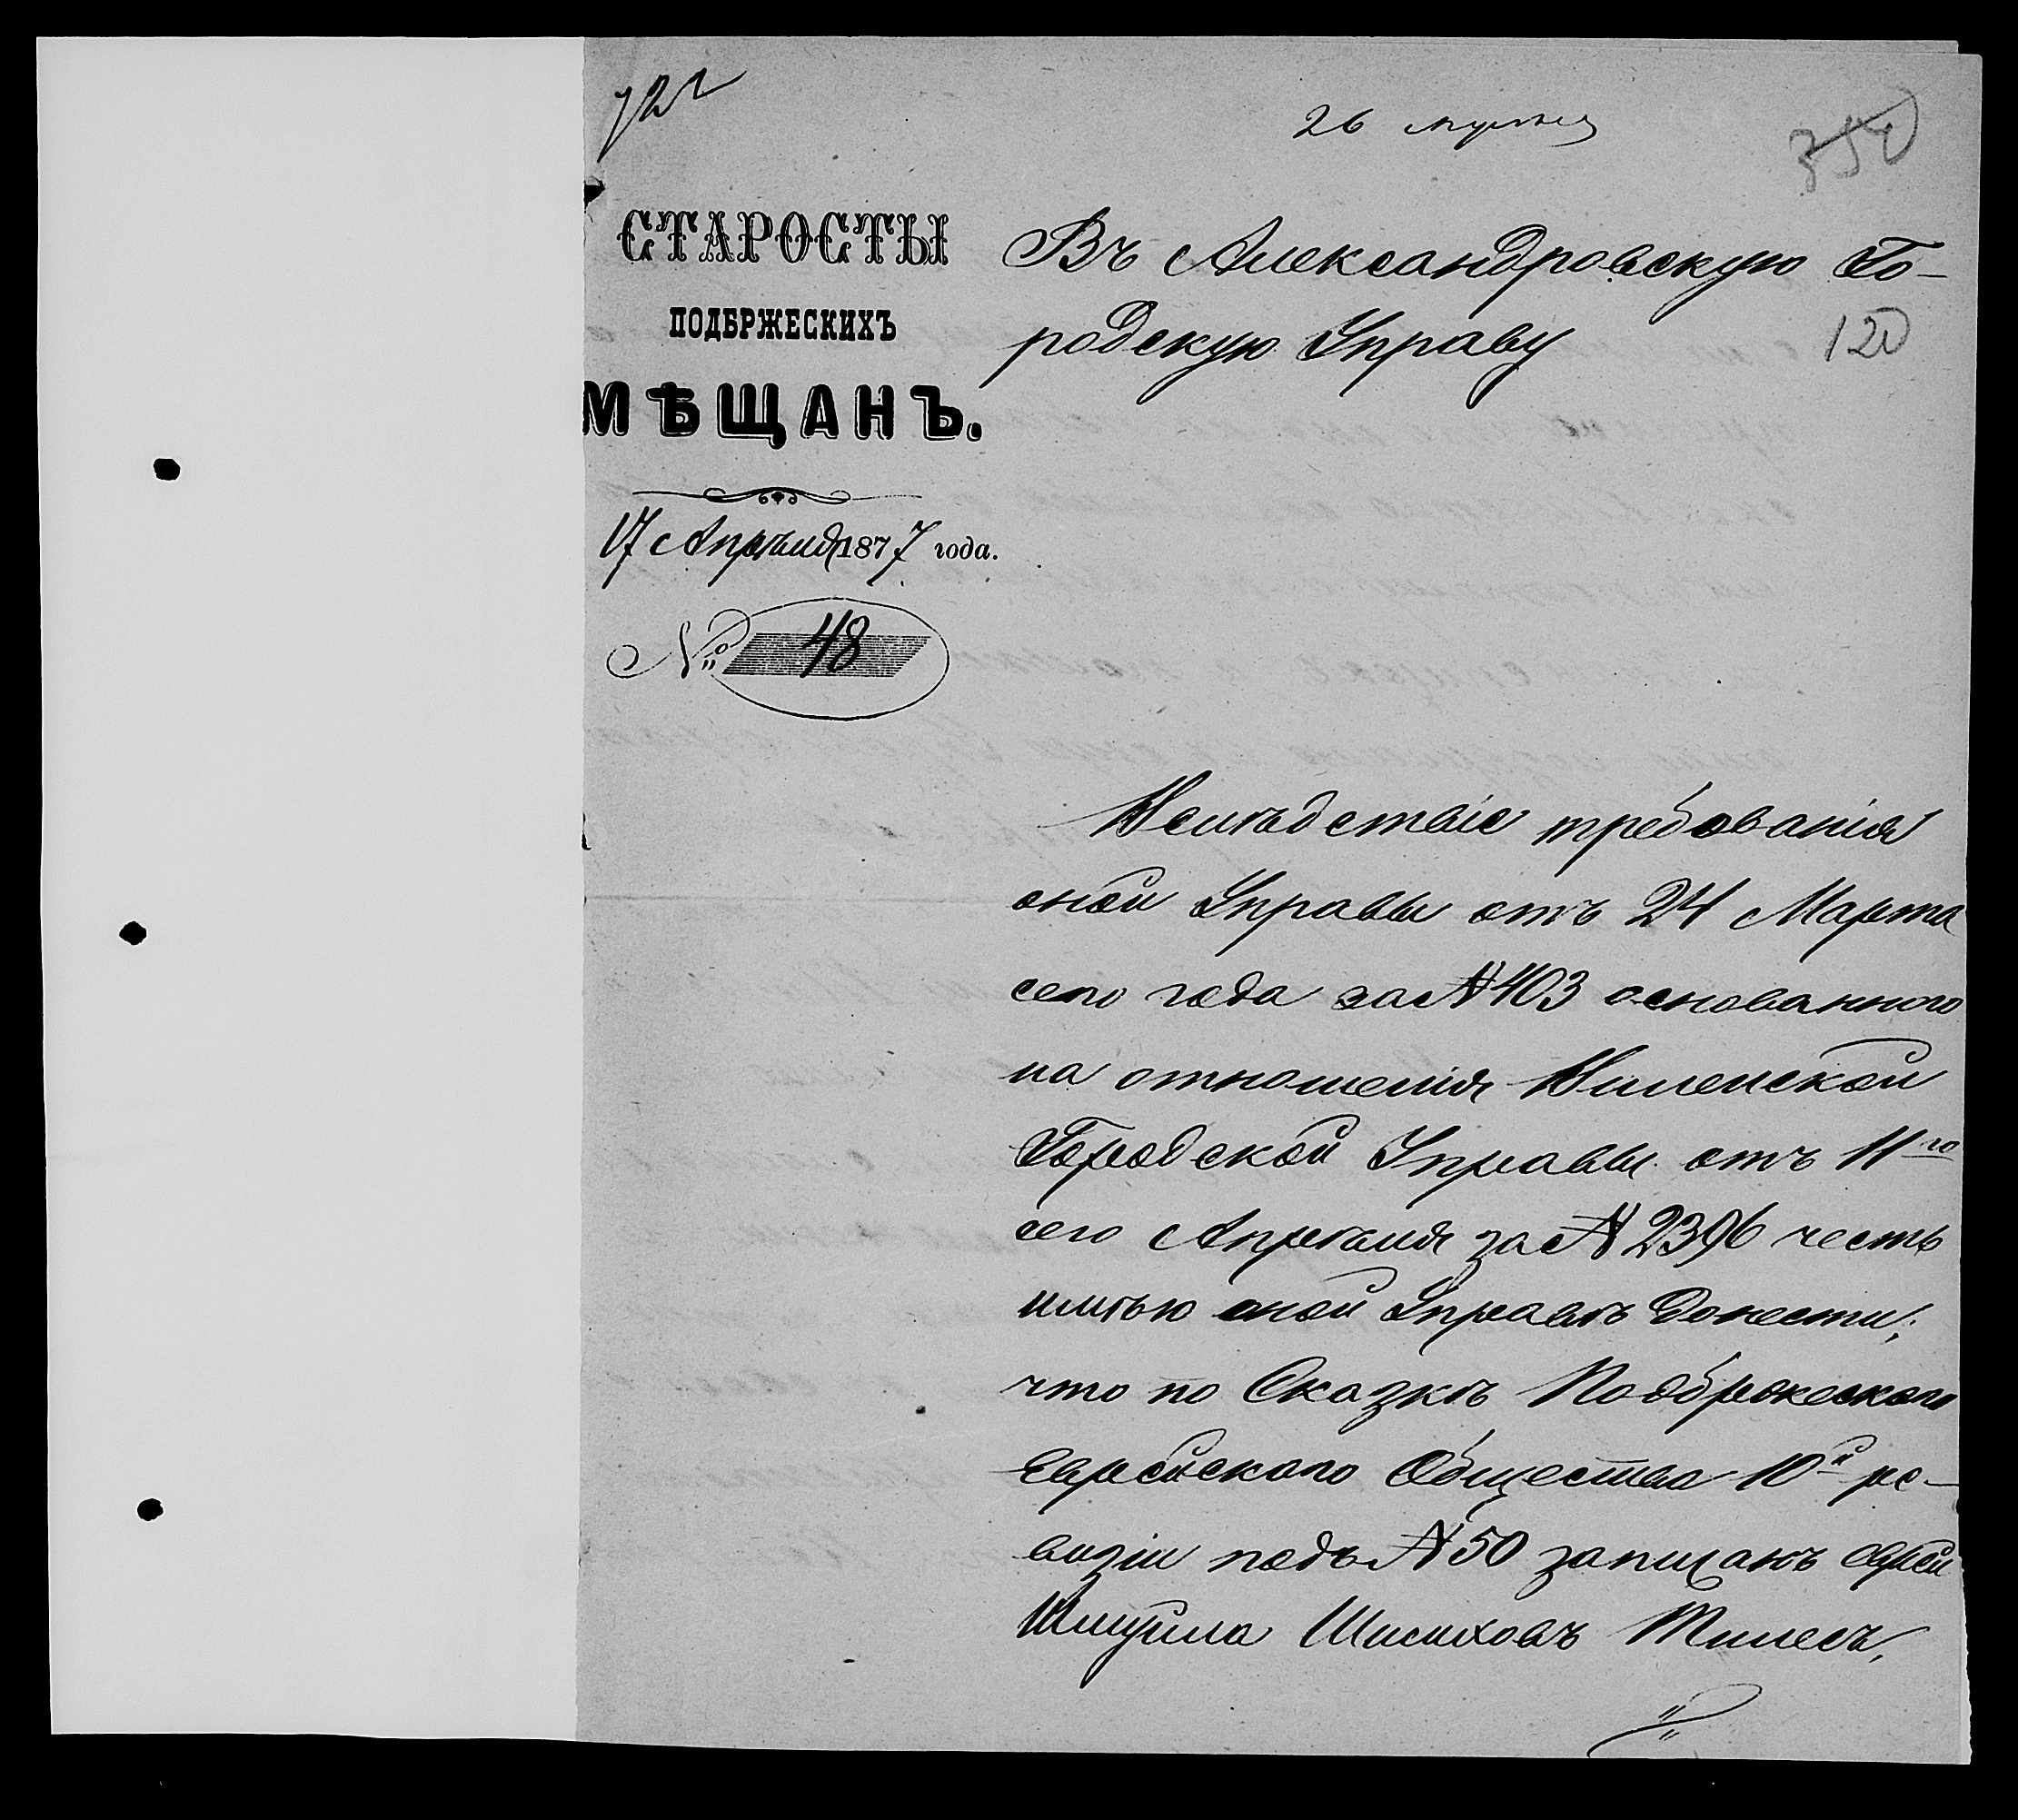 26
350
СТАРОСТЫ
ПОДБРЖЕСКИХЪ
МѢЩАНЪ.
17 Апрѣля 1877 года.
№ 48
Въ Александровскую Го-
родскую Управу
120
Вслѣдствіе требованія
оной Управы отъ 24 Марта
сего года за № 403 основаннаго
на отношенія Виленской
Городской Управы отъ 11го
сего Апрѣля за № 2396 честь
имѣю оной Управѣ донести,
что по Сказкѣ Подбржескаго
Еврейскаго Общества 10й ре-
визіи подъ № 50 записанъ еврей
Шмуйла